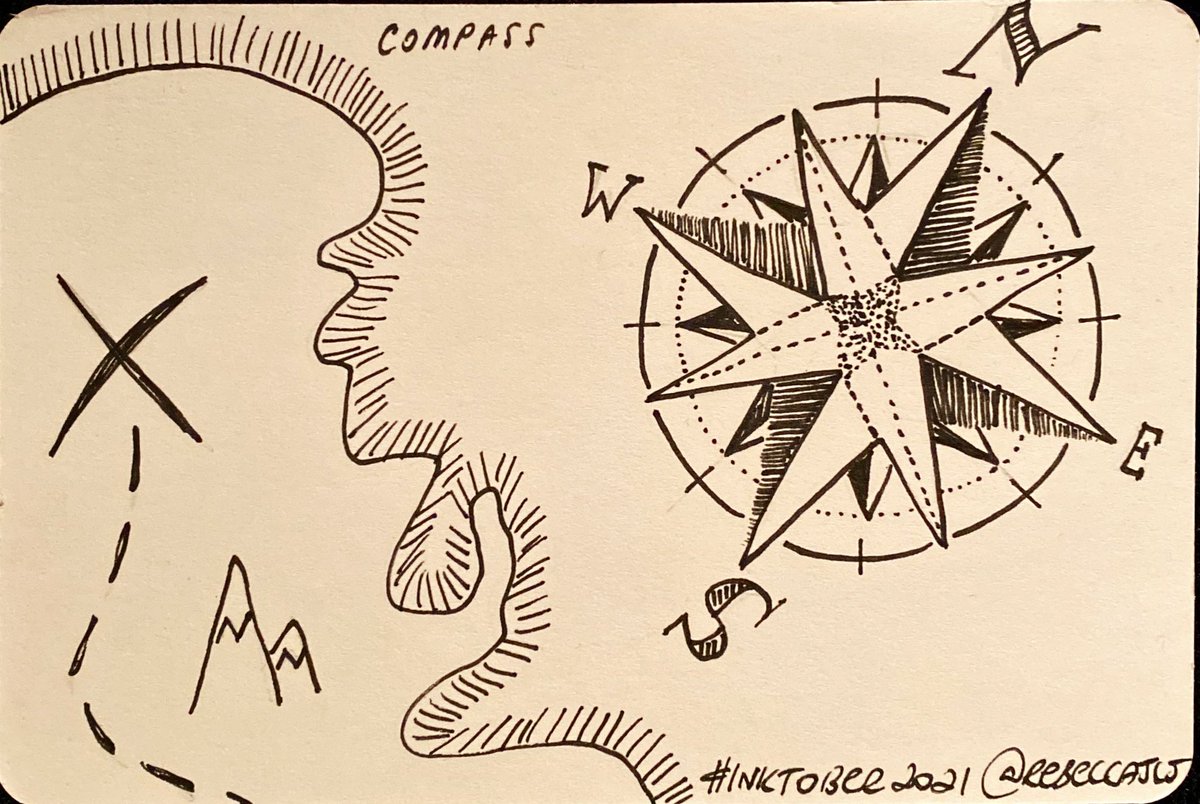 COMPASS
N
W
E
S
#INKTOBER2021 @REBECCAJLW